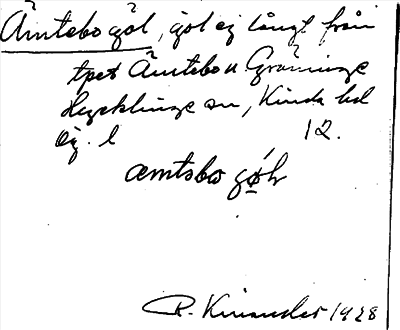 Ämtebo göl, göl ej långt från
tpet Ämtebo u Gröninge
Hycklinge sn, Kinda hd
Ög. l 12.
æmtsbo
R. Kinander 1928